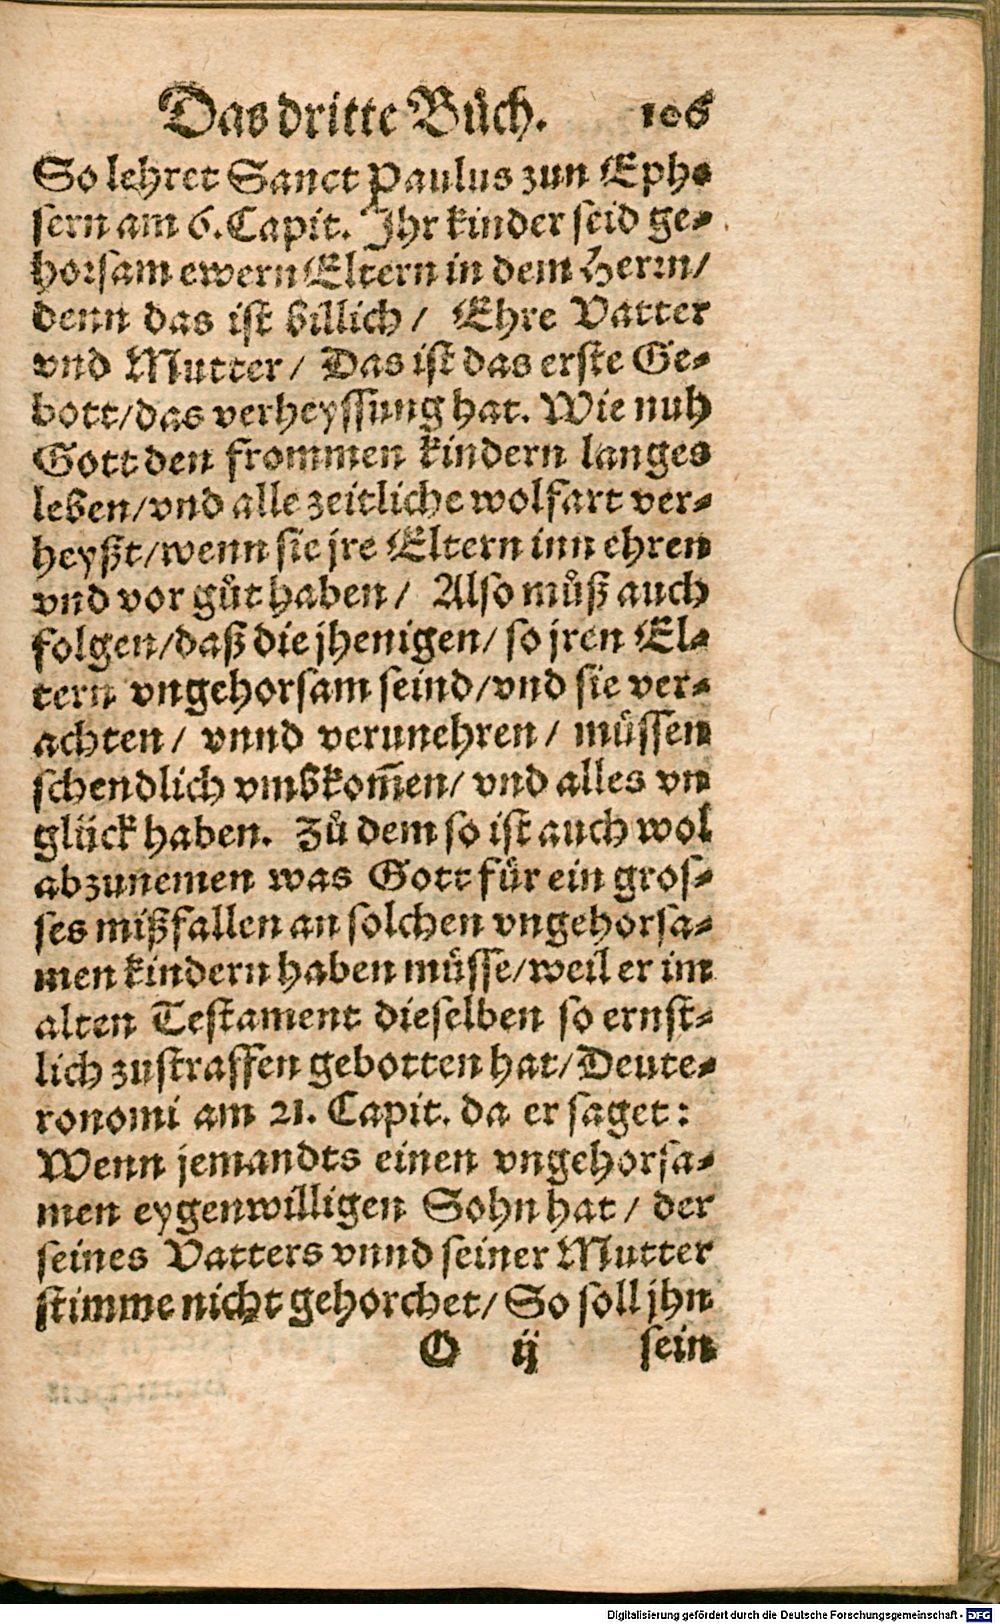 Das dritte Bůch. 106
So lehret Sanct Paulus zun Ephe⸗
sern am 6. Capit. Ihr kinder seid ge⸗
horsam ewern Eltern in dem Herrn/
denn das ist billich/ Ehre Vatter
vnd Mutter/ Das ist das erste Ge⸗
bott/das verheyssung hat. Wie nuh
Gott den frommen kindern langes
leben/vnd alle zeitliche wolfart ver⸗
heyßt/wenn sie jre Eltern inn ehren
vnd vor gůt haben/ Also můß auch
folgen/daß die jhenigen/ so jren El⸗
tern vngehorsam seind/vnd sie ver⸗
achten/ vnnd verunehren/ müssen
schendlich vmbkom̃en/ vnd alles vn
glück haben. Zů dem so ist auch wol
abzunemen was Gott für ein gros⸗
ses mißfallen an solchen vngehorsa⸗
men kindern haben müsse/weil er im
alten Testament dieselben so ernst⸗
lich zustraffen gebotten hat/ Deute⸗
ronomi am 21. Capit. da er saget:
Wenn jemandts einen vngehorsa⸗
men eygenwilligen Sohn hat/ der
seines Vatters vnnd seiner Mutter
stimme nicht gehorchet/ So soll jhn
O ij sein
Digitalisierung gefördert durch die Deutsche Forschungsgemeinschaft - DFG